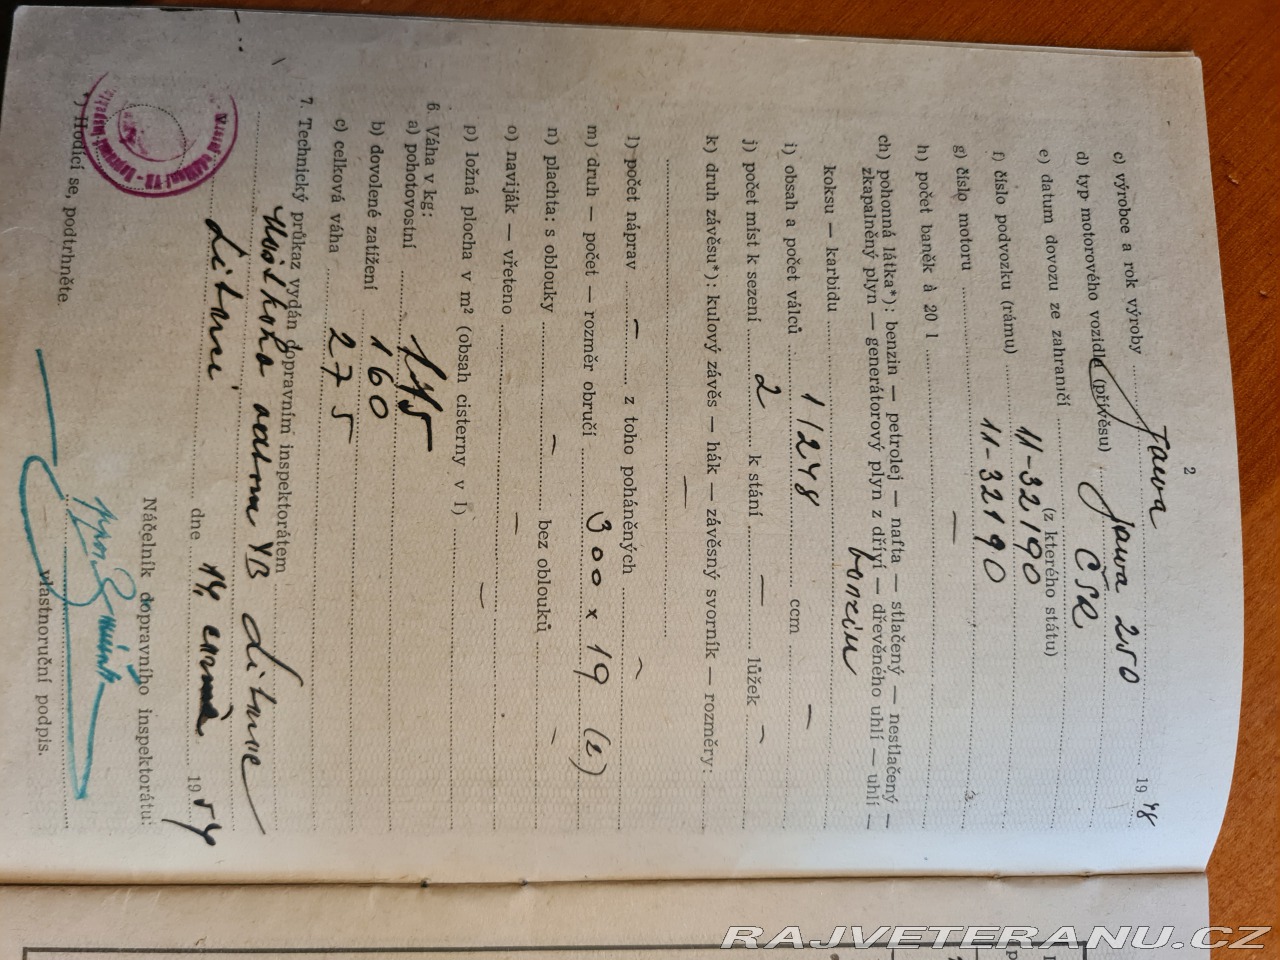 2
c) výrobce a rok výroby Jawa 1948
d) typ motorového vozidla (přívěsu) Jawa 250
e) datum dovozu ze zahraničí ČSR
(z kterého státu)
f) číslo podvozku (rámu) 11-32190
g) číslo motoru 11-32190
h) počet baněk à 20 l —
ch) pohonná látka*): benzin — petrolej — nafta — stlačený — nestlačený —
zkapalněný plyn — generátorový plyn z dříví — dřevěného uhlí — uhlí —
koksu — karbidu benzin
i) obsah a počet válců 1/248 ccm —
j) počet míst k sezení 2 k stání — lůžek —
k) druh závěsu*): kulový závěs — hák — závěsný svorník — rozměry:
—
l) počet náprav — z toho poháněných —
m) druh — počet — rozměr obručí 300 x 19 (2)
n) plachta: s oblouky — bez oblouků —
o) naviják — vřeteno —
p) ložná plocha v m² (obsah cisterny v l) —
6. Váha v kg:
a) pohotovostní 115
b) dovolené zatížení 160
c) celková váha 275
7. Technický průkaz vydán dopravním inspektorátem
VB
dne 14. 1954
Náčelník dopravního inspektorátu:
vlastnoruční podpis.
*) Hodící se, podtrhněte.
RAJVETERANU.CZ